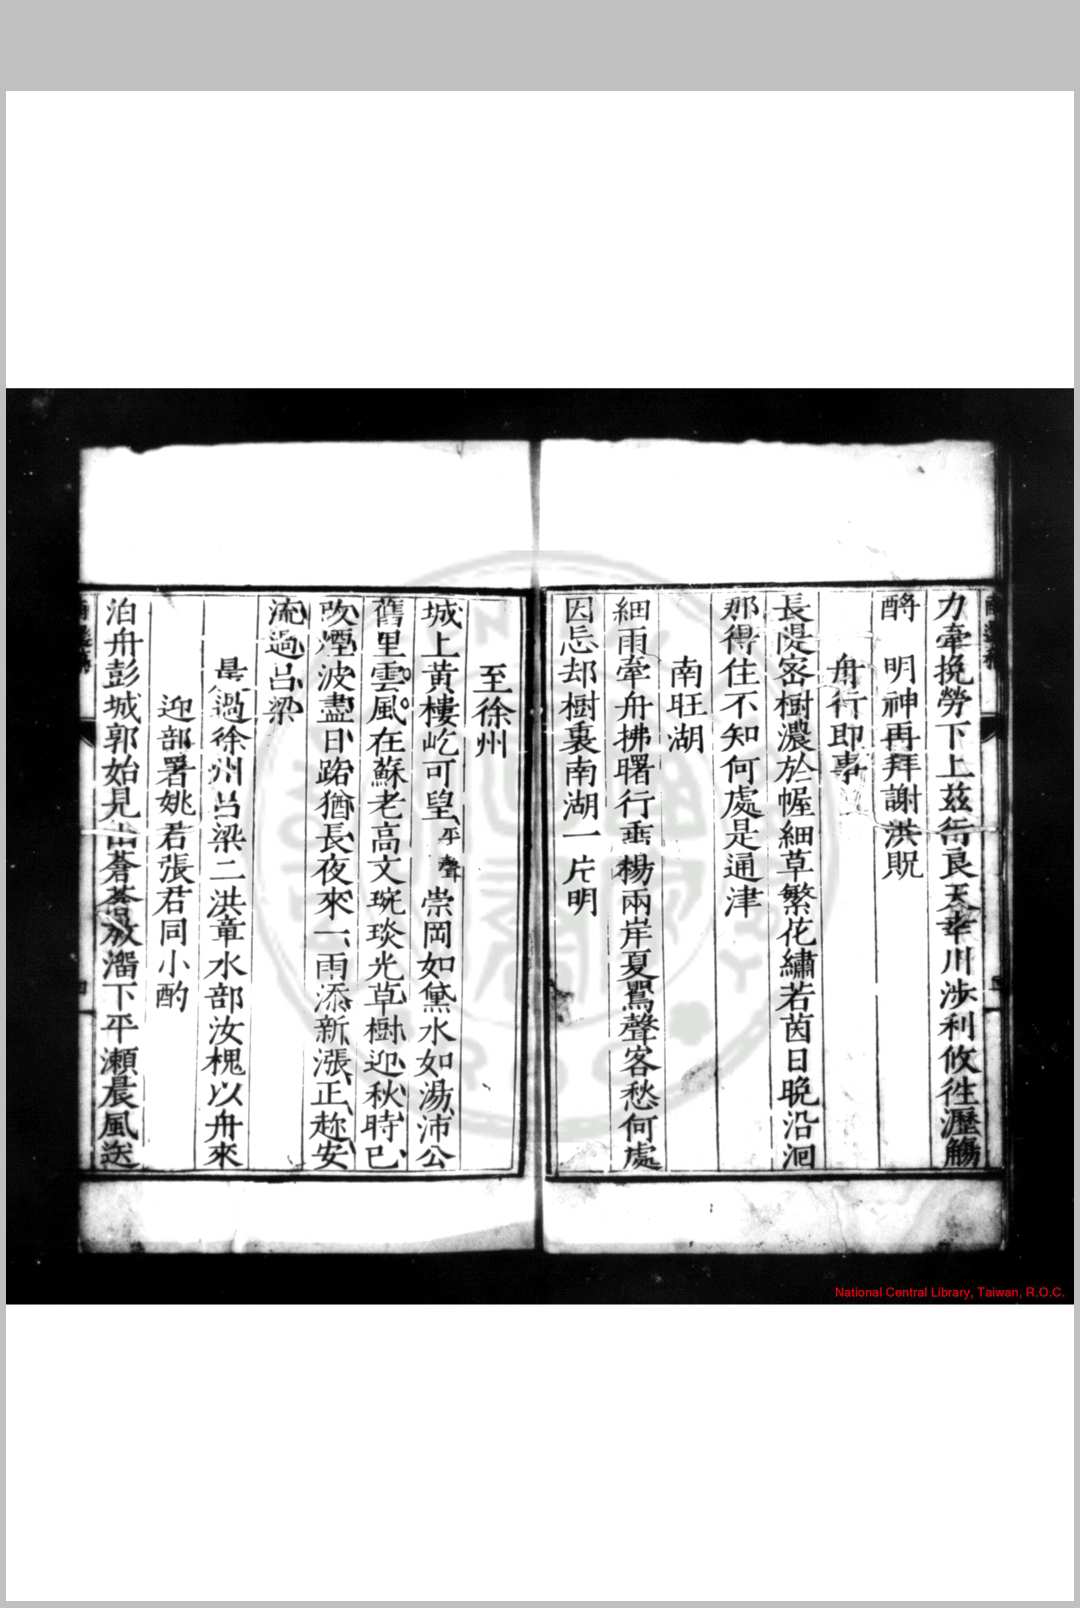 力牽挽勞下上茲衍良天幸川涉利攸徃瀝觴
酹　明神再拜謝洪貺
舟行即事
長隄宻樹濃於幄細草繁花繡若茵日晚沿洄
那得住不知何處是通津
南旺湖
細雨牽舟拂曙行垂楊兩岸夏鸎聲客愁何處
因忘却樹裏南湖一片明
至徐州
城上黃樓屹可望平聲崇岡如黛水如湯沛公
舊里雲風在蘇老高文琬琰光草樹迎秋時已
改煙波盡日路猶長夜來一雨添新漲正趂安
流過吕梁
過徐州吕梁二洪章水部汝槐以舟來
迎部署姚君張君同小酌
泊舟彭城郭始見山蒼蒼放溜下平瀬晨風送
National Central Library, Taiwan, R.O.C.